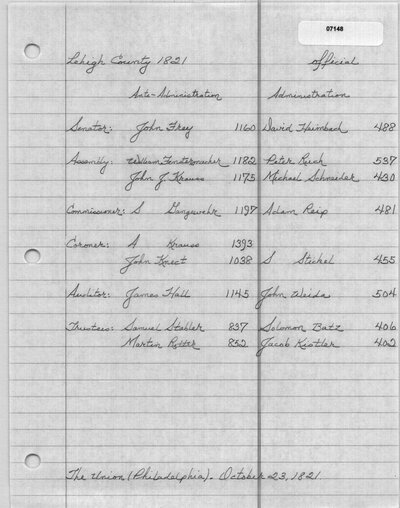 07148
Lehigh County 1821 official
Ante-Administration Administration
Senator: John Frey 1160 David Heimbach 488
Assembly: William Fenstermacher 1182 Peter Ruch 537
John J Krauss 1175 Michael Schneider 430
Commissioner: S Gangewehr 1197 Adam Reip 481
Coroner: A Krauss 1393
John Knect 1038 S Stickel 455
Auditor: James Hall 1145 John Weida 504
Trustees: Samuel Stahler 837 Solomon Batz 406
Martin Ritter 852 Jacob Kistler 402
The Union (Philadelphia). October 23, 1821